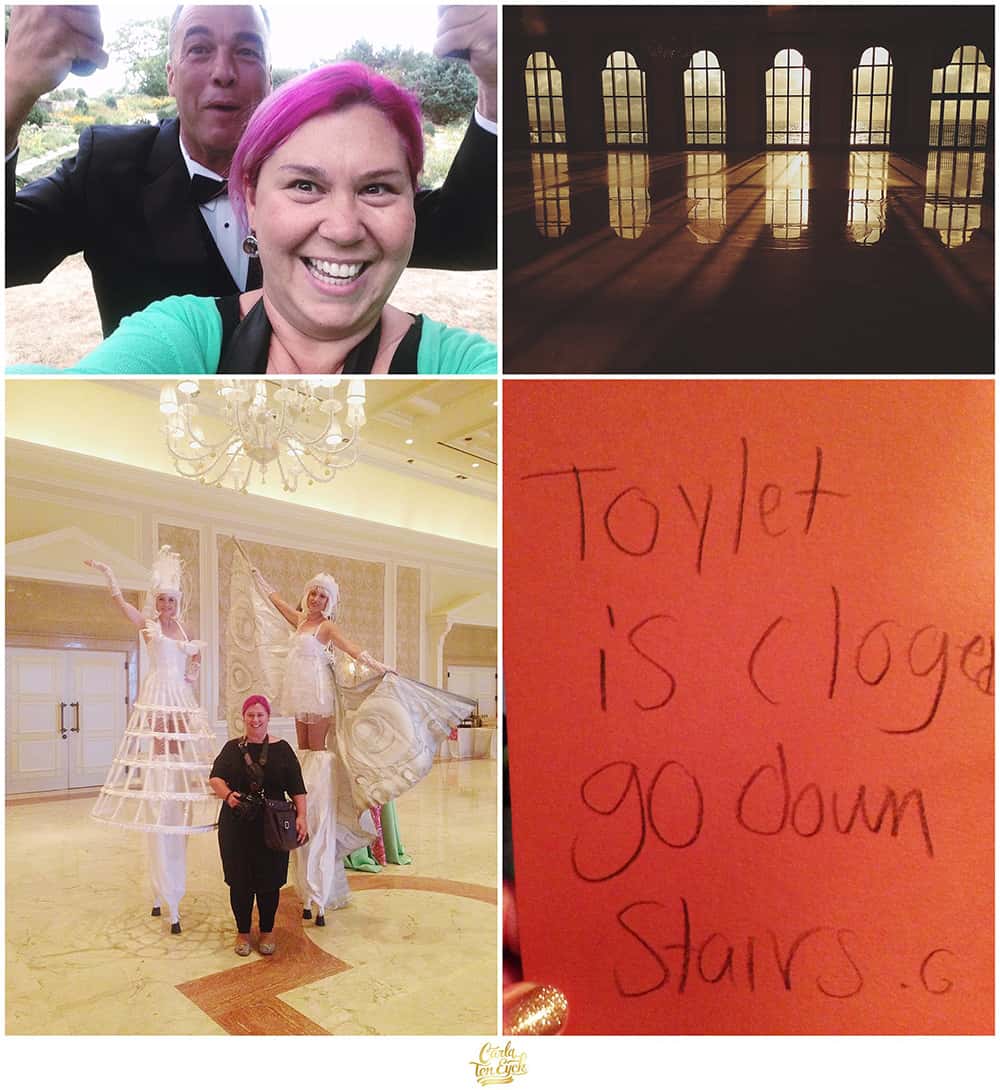 Toylet
is Cloged
go down
Stairs. G
Carla
Ten Eyck